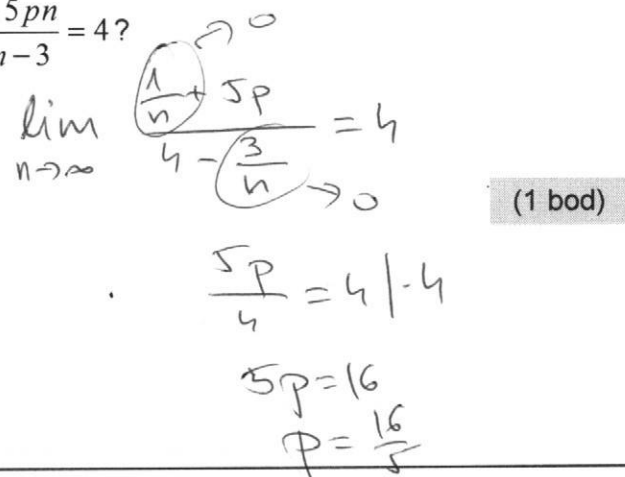 5pn
n-3 = 4?
lim n→∞ (1/n + 5p) / (4 - 3/n) = 4
→ 0
→ 0
(1 bod)
5p/4 = 4 |·4
5p = 16
p = 16/5